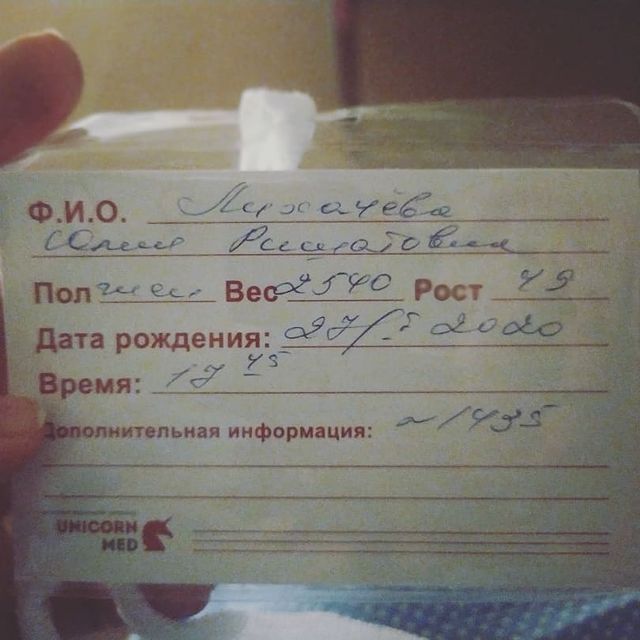 Ф.И.О. Лихачёва
Юлия Ришатовна
Пол жен Вес 2540 Рост 49
Дата рождения: 2020
Время: 17 45
Дополнительная информация: ~1435
UNICORN
MED